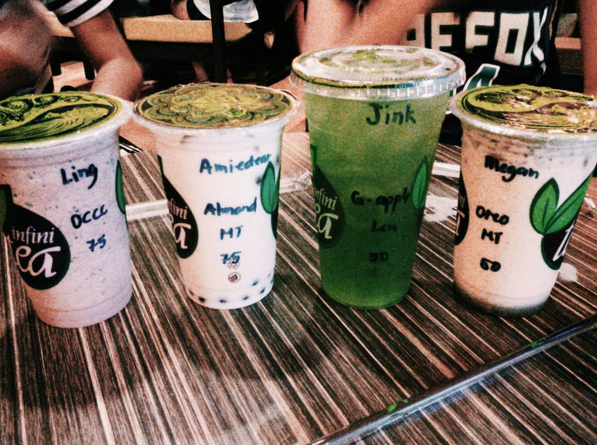 EFOX
Ling
OCCC
75
infini
ea
Amiedear
Almond
MT
75
infini
ea
Jink
G-apple
Lem
50
infini
ea
Megan
Oreo
MT
50
t